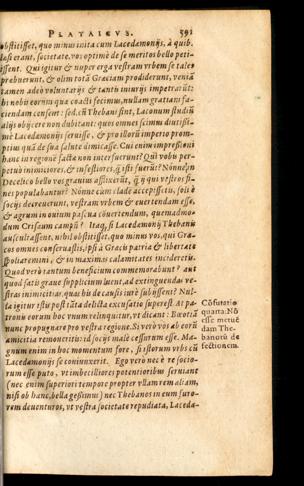 PLATAICVS. 591
obstitisset, quo minus inita cum Lacedæmonijs, à quib.
læsi erant, societate, vos optimè de se meritos bello peti-
issent. Qui igitur & nuper erga vestram vrbem se tales
præbuerunt, & olim totā Græciam prodiderunt, veniā
tamen adeò voluntarijs & tantis iniurijs impetrarūt:
hi nobis eorum quæ coacti fecimus, nullam gratiam fa-
ciendam censent: sed, cū Thebani sint, Laconum studiū
alijs obijcere non dubitant: quos omnes scimus diutissi-
mè Lacedæmonijs seruisse, & pro illorū imperio prom-
ptius quā de sua salute dimicasse. Cui enim impressioni
hanc in regionē factæ non interfuerunt? Qui vobis per-
petuò inimiciores, & infestiores, q̃ isti fuerūt? Nōne in
Deceleico bello vos grauius afflixerūt, q̃ ij qui vestros fi-
nes populabantur? Nónne cùm clade accepissetis, soli è
socijs decreuerunt, vestram vrbem & euertendam esse,
& agrum in ouium pascua cōuertendum, quemadmo-
dum Crisæum campū? Itaq, si Lacedæmonij Thebanis
auscultassent, nihil obstitisset, quo minus vos, qui Græ-
cos omnes conseruastis, ipsi à Græcis patria & libertate
spoliaremini, & in maximas calamitates incideretis.
Quod verò tantum beneficium commemorabunt? aut
quod satis graue supplicium luent, ad extinguendas ve-
stras inimicitias, quas his de causis iurè subijssent? Nul-
la igitur istis post tāta delicta excusatio superest. At pa-
tronis eorum hoc vnum relinquitur, vt dicant: Bœotiā
nunc propugnare pro vestra regione. Si verò vos ab eorū
amicitia remoueritis: id socijs malè cessurum esse. Ma-
gnum enim in hoc momentum fore, si istorum vrbs cū
Lacedæmonijs se coniunxerit. Ego verò nec è re socio-
rum esse puto, vt imbecilliores potentioribus seruiant
(nec enim superiori tempore propter vllam rem aliam,
nisi ob hanc, bella gessimus) nec Thebanos in eum furo-
rem deuenturos, vt vestra societate repudiata, Laceda-
Cōfutatio
quarta: Nō
esse metuē
dam The-
banorū de
fectionem.